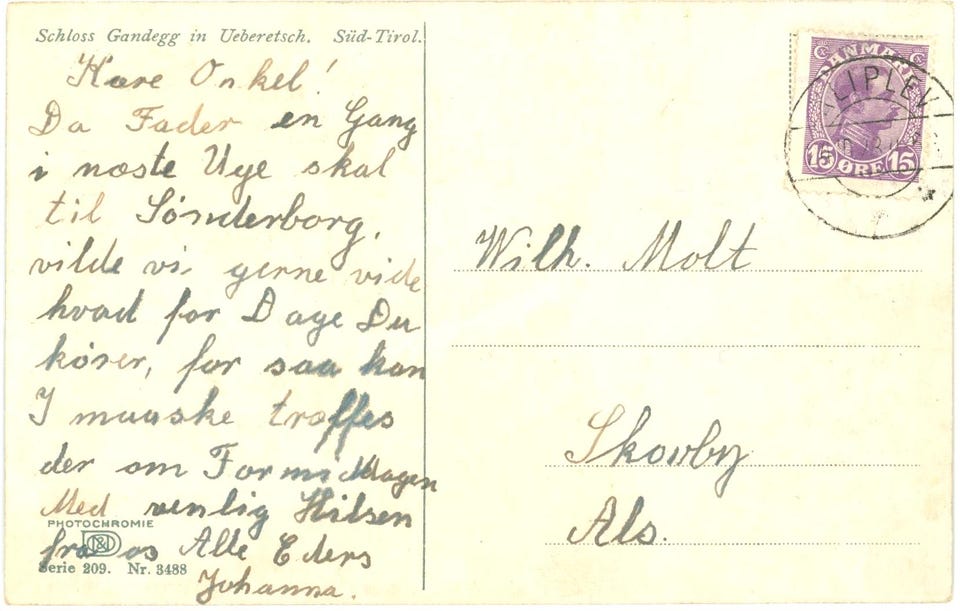 Schloss Gandegg in Ueberetsch. Süd-Tirol.
Kære Onkel!
Da Fader en Gang
i næste Uge skal
til Sønderborg,
vilde vi gerne vide
hvad for Dage Du
kører, for saa kan
I maaske træffes
der om Formiddagen
Med venlig Hilsen
fra os Alle Eders
Johanna.
PHOTOCHROMIE
Serie 209. Nr. 3488
DANMARK
15 ØRE 15
KLIPLEV
Wilh. Molt
Skovby
Als.